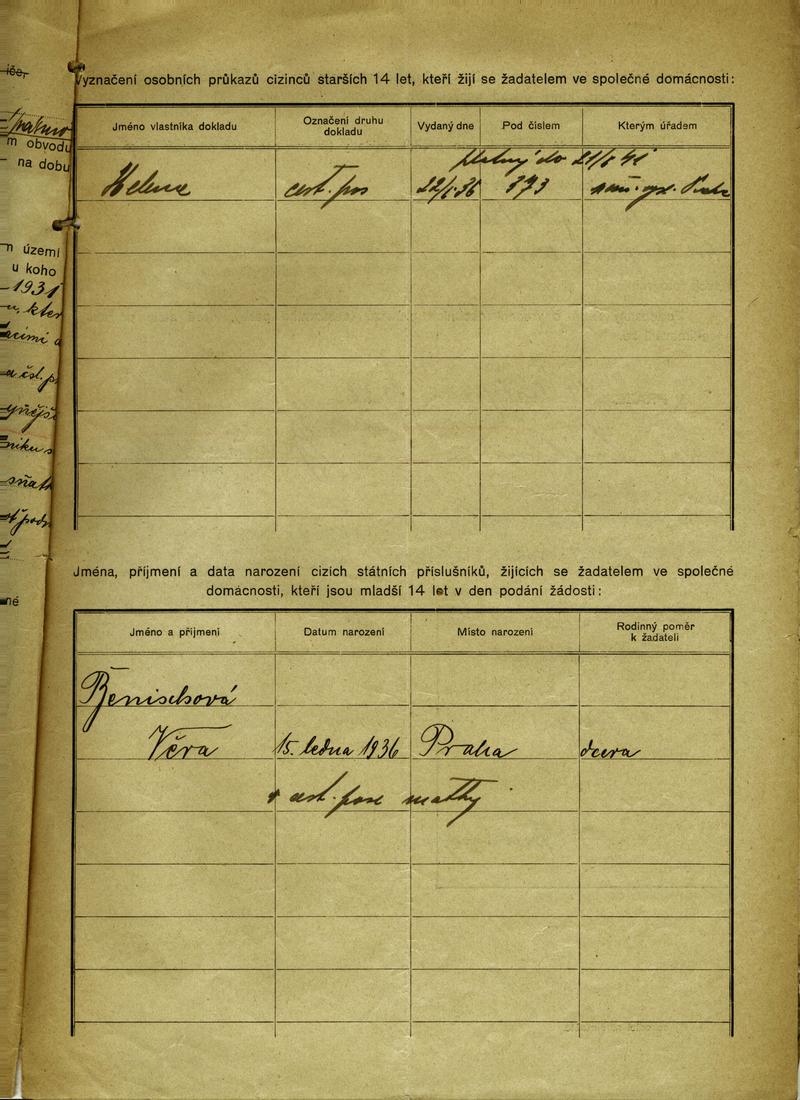 Vyznačení osobních průkazů cizinců starších 14 let, kteří žijí se žadatelem ve společné domácnosti:
Jméno vlastníka dokladu
Označení druhu
dokladu
Vydaný dne
Pod číslem
Kterým úřadem
platný do 21/1 41
Helena
cest. pas
22/1 36
193
m obvodu
na dobu
území
u koho
1931
Jména, příjmení a data narození cizích státních příslušníků, žijících se žadatelem ve společné
domácnosti, kteří jsou mladší 14 let v den podání žádosti:
Jméno a příjmení
Datum narození
Místo narození
Rodinný poměr
k žadateli
Benischová
Věra
15. ledna 1936
Praha
dcera
v cest. pase matky